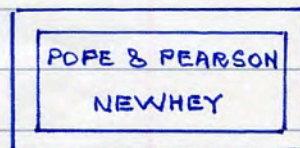 POPE & PEARSON
NEWHEY